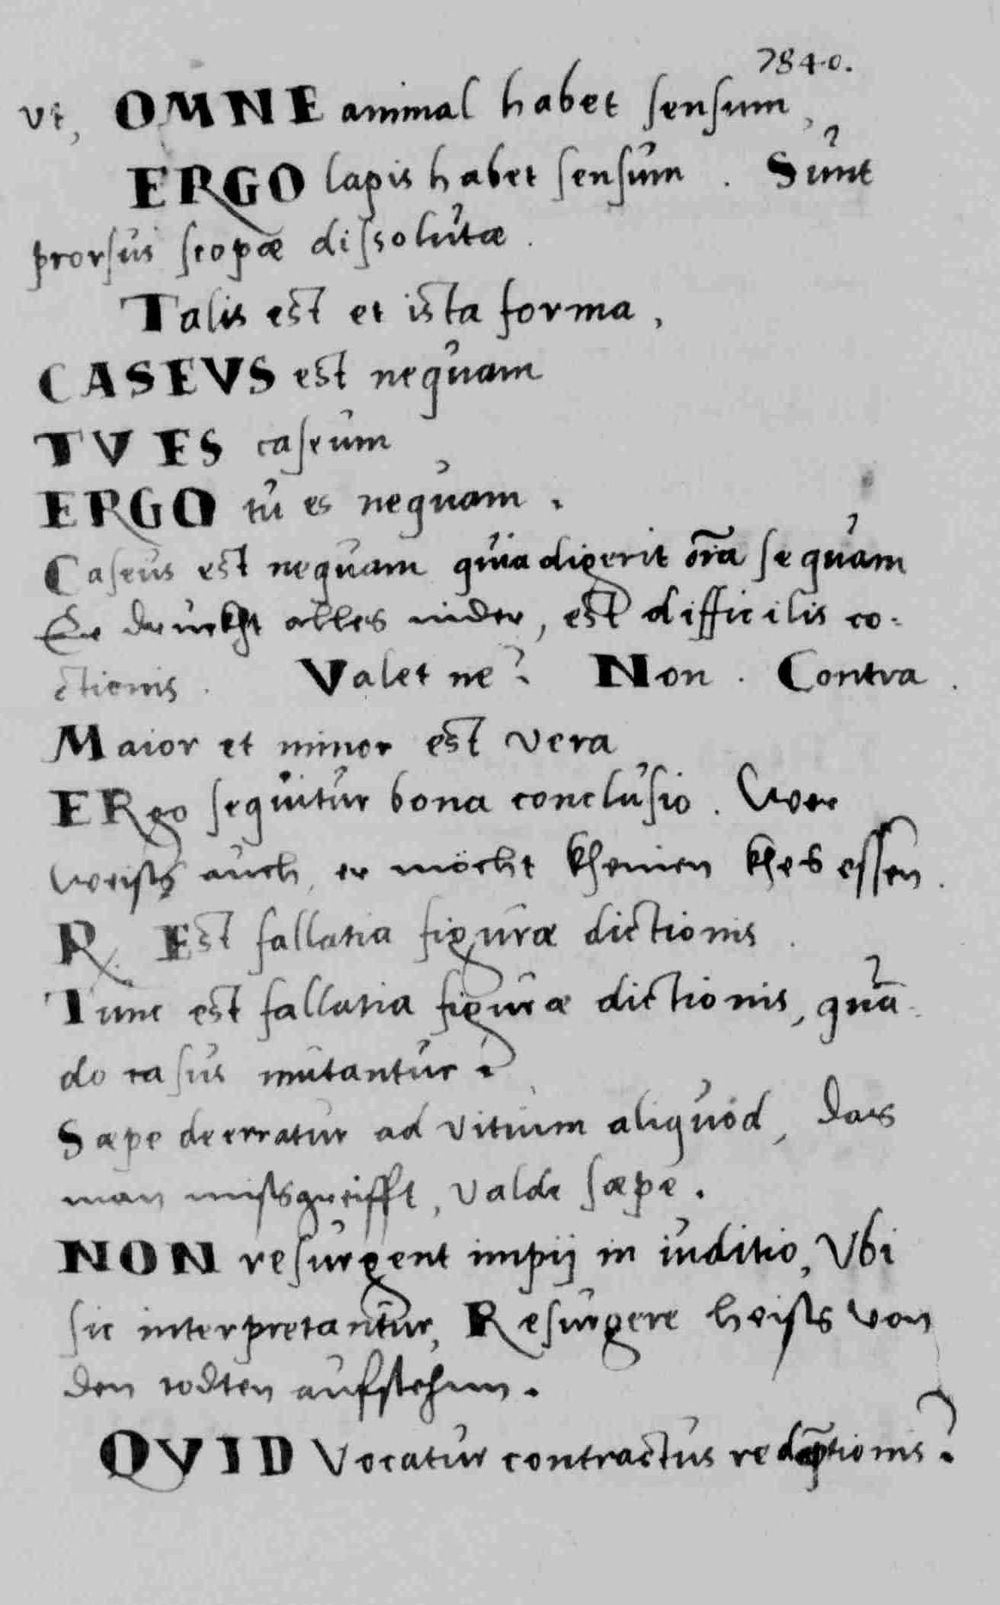 7840.
vt, OMNE animal habet sensum,
ERGO lapis habet sensum . Sunt
prorsus scopæ dissolutæ .
Talis est et ista forma,
CASEVS est nequam
TV ES caseum
ERGO tu es nequam .
Caseus est nequam quia digerit oīa se quam
Er druckht alles nider, est difficilis co-
ctionis . Valet ne? Non . Contra .
Maior et minor est vera
ERgo sequitur bona conclusio . Wer
weisß auch, er möcht kheinen khes essen .
R. Est fallatia figuræ dictionis .
Tunc est fallatia figuræ dictionis, quā-
do casus mutantur .
Sæpe deerratur ad vitium aliquod, das
man missgreifft, valde sæpe .
NON resurgent impij in iuditio, Vbi
sic interpretantur, Resurgere heists von
den todten aufstehnn .
QVID vocatur contractus redēptionis?